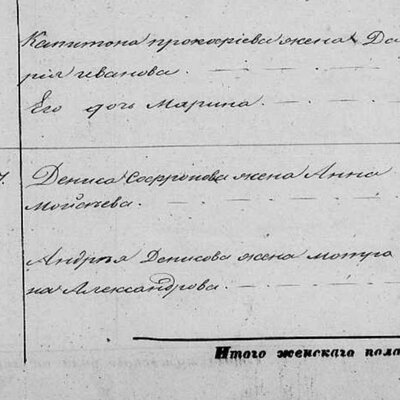 Капитона прокофiева жена Да
рiя иванова.
Его дочь Марина.
7. Дениса Софронова жена Анна
Мойсѣева.
Андрѣя Денисова жена мотро
на Александрова.
Итого женскаго пола